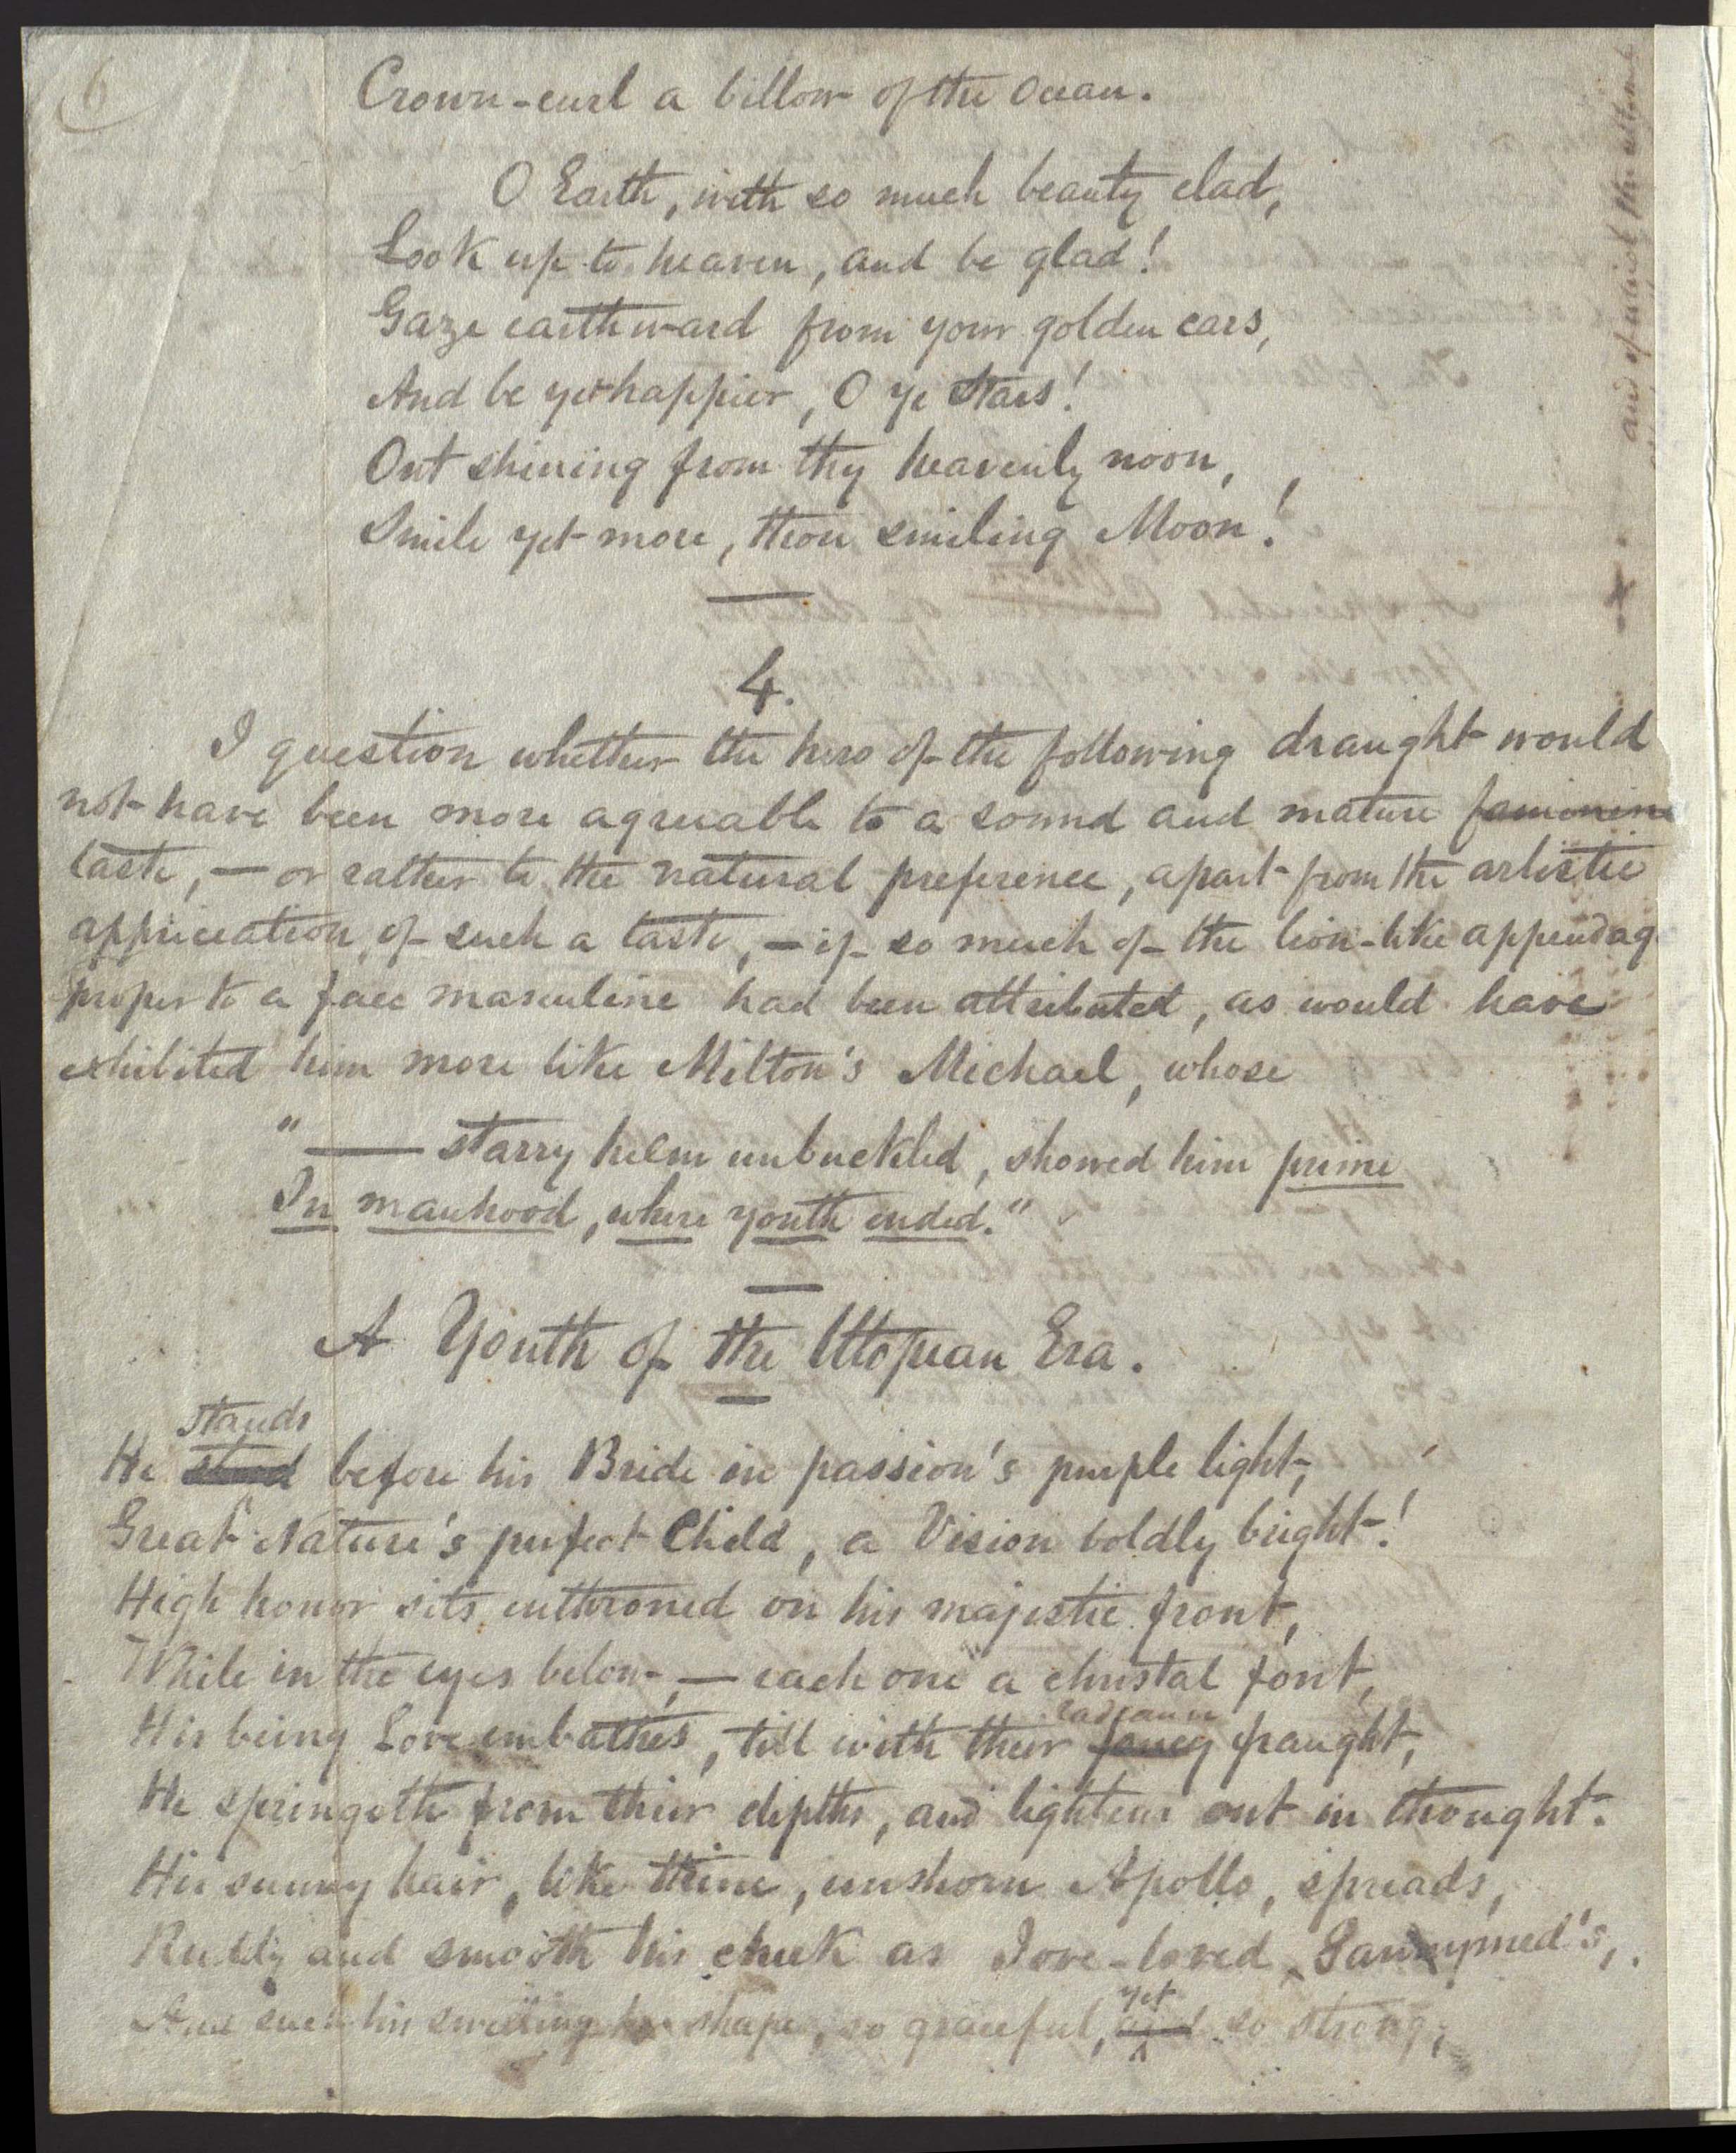 6
Crown-curl a billow of the Ocean.
O Earth, with so much beauty clad,
Look up to heaven, and be glad!
Gaze earthward from your golden cars,
And be yet happier, O ye Stars!
Out shining from thy heavenly noon,
Smile yet more, thou smiling Moon!
4.
I question whether the hero of the following draught would
not have been more agreeable to a sound and mature feminine
taste, — or rather to the natural preference, apart from the artistic
appreciation, of such a taste, — if so much of the lion-like appendag
proper to a face masculine had been attributed, as would have
exhibited him more like Milton's Michael, whose
" — starry helm unbuckled, showed him prime
In manhood, where youth ended."
A Youth of the Utopian Era.
stands
He stood before his Bride in passion's purple light,
Great Nature's perfect Child, a Vision boldly bright!
High honor sits enthroned on his majestic front,
While in the eyes below, — each one a christal font,
radiance
His being Love embathes, till with their fancy fraught,
He springeth from thier depths, and lightens out in thought.
His sunny hair, like thine, unshorn Apollo, spreads,
Ruddy and smooth his cheek as Jove-loved Ganymed's,
yet
And such his swelling shape, so graceful, and so strong,
and of which the